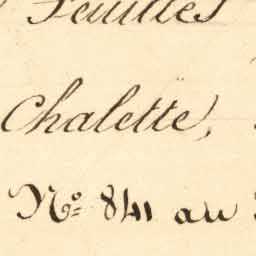 Feuilles
Chalette,
Nº 841 au